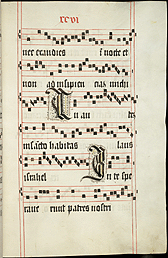 xcvi
nec exaudies i nocte et
non ad insipien ciam michi
Tu au tẽ
in sācto habitas laus
israhel In te spe
raue runt patres nostri